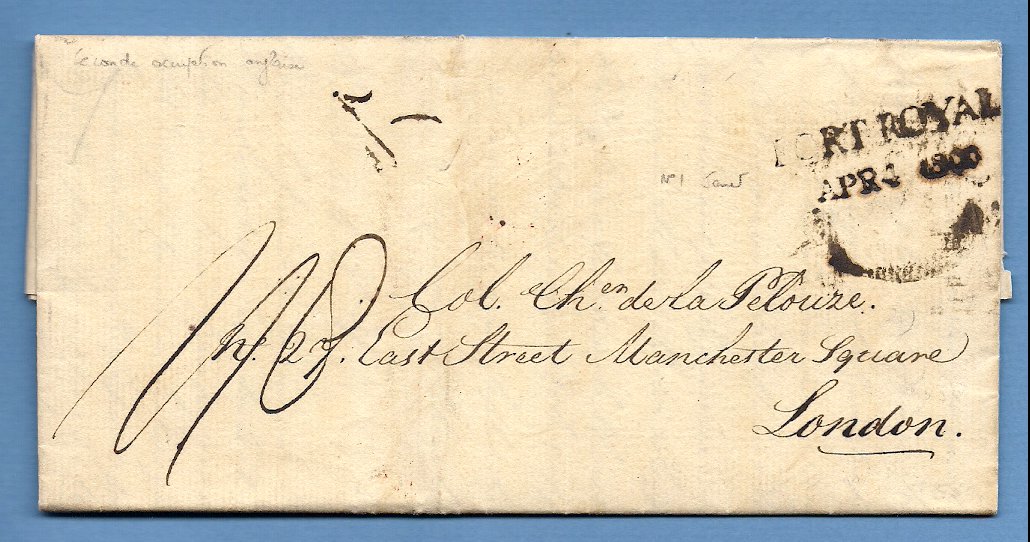 seconde occupation anglaise
FORT ROYAL
APR 4
N°1
Col. Ch.er de la Pelouze.
No. 27. East Street Manchester Square
London.